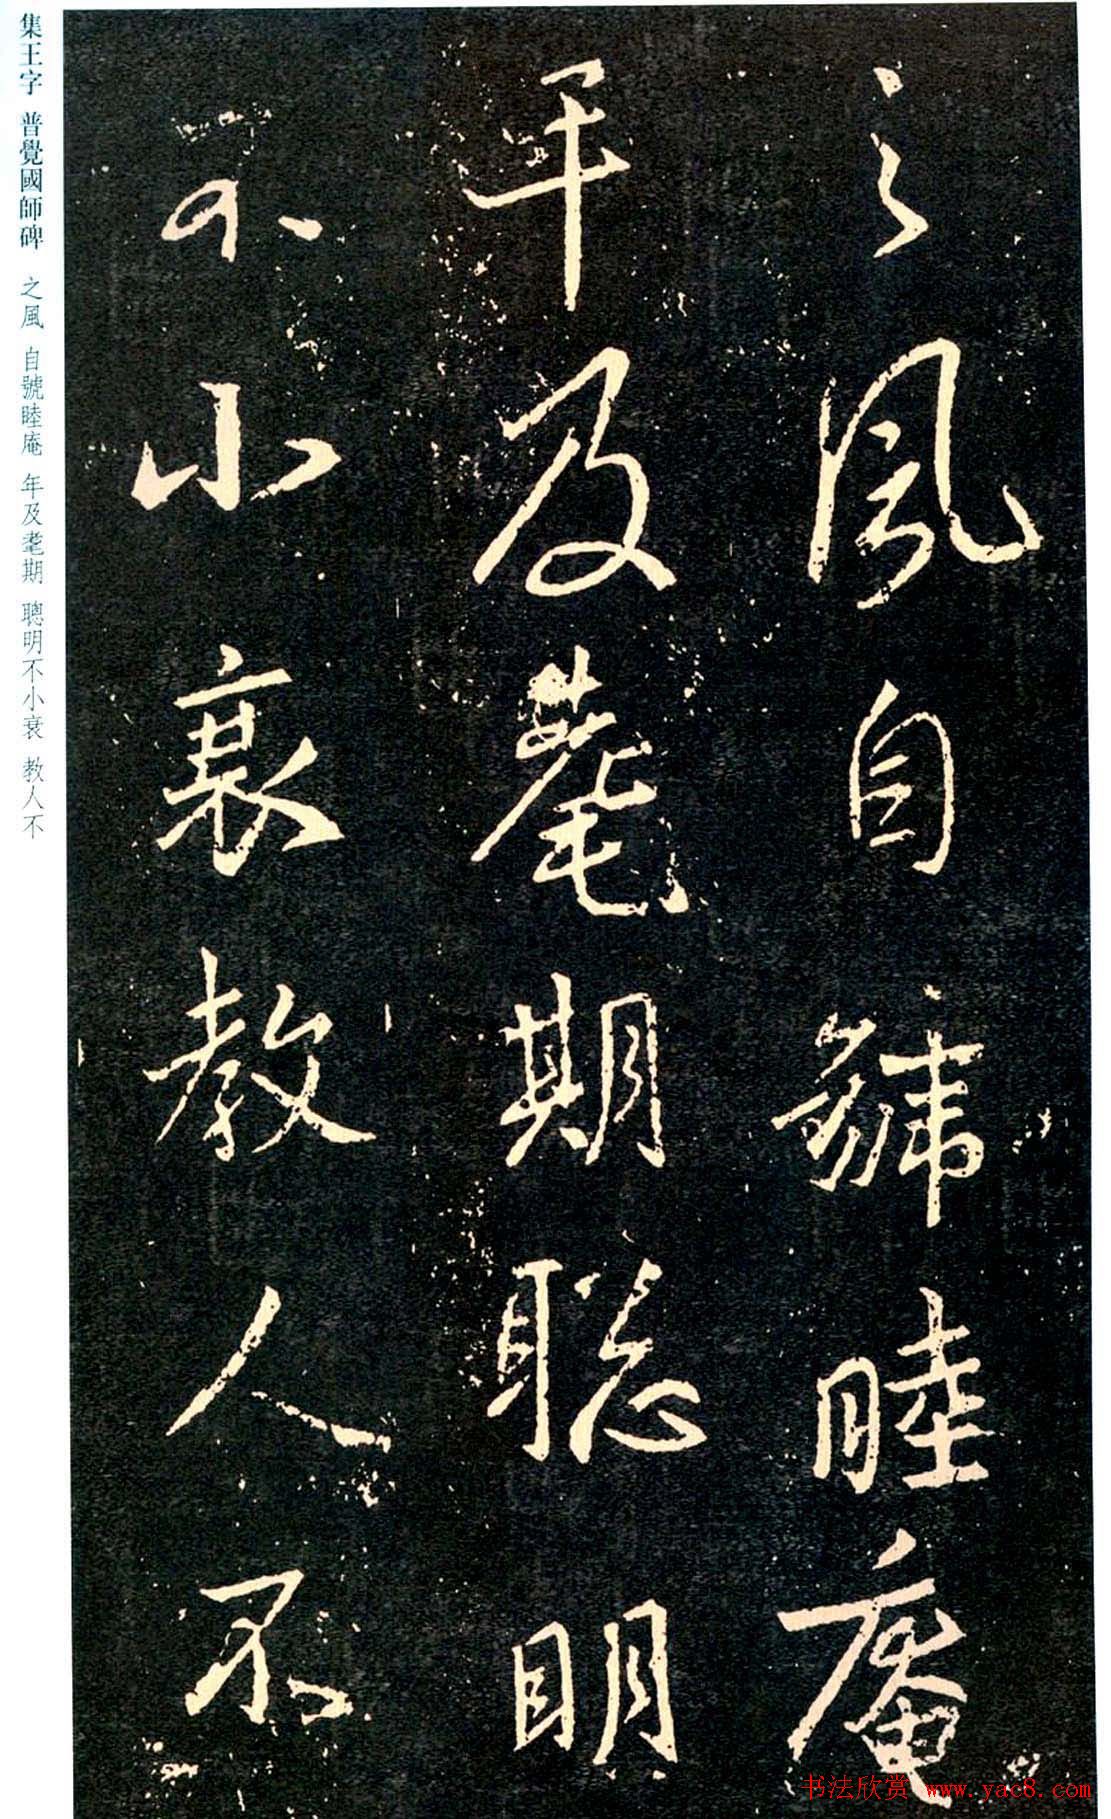 之風自號睦庵
年及耄期聰明
不小衰教人不
集王字 普覺國師碑 之風 自號睦庵 年及耄期 聰明不小衰 教人不
书法欣赏 www.yac8.com